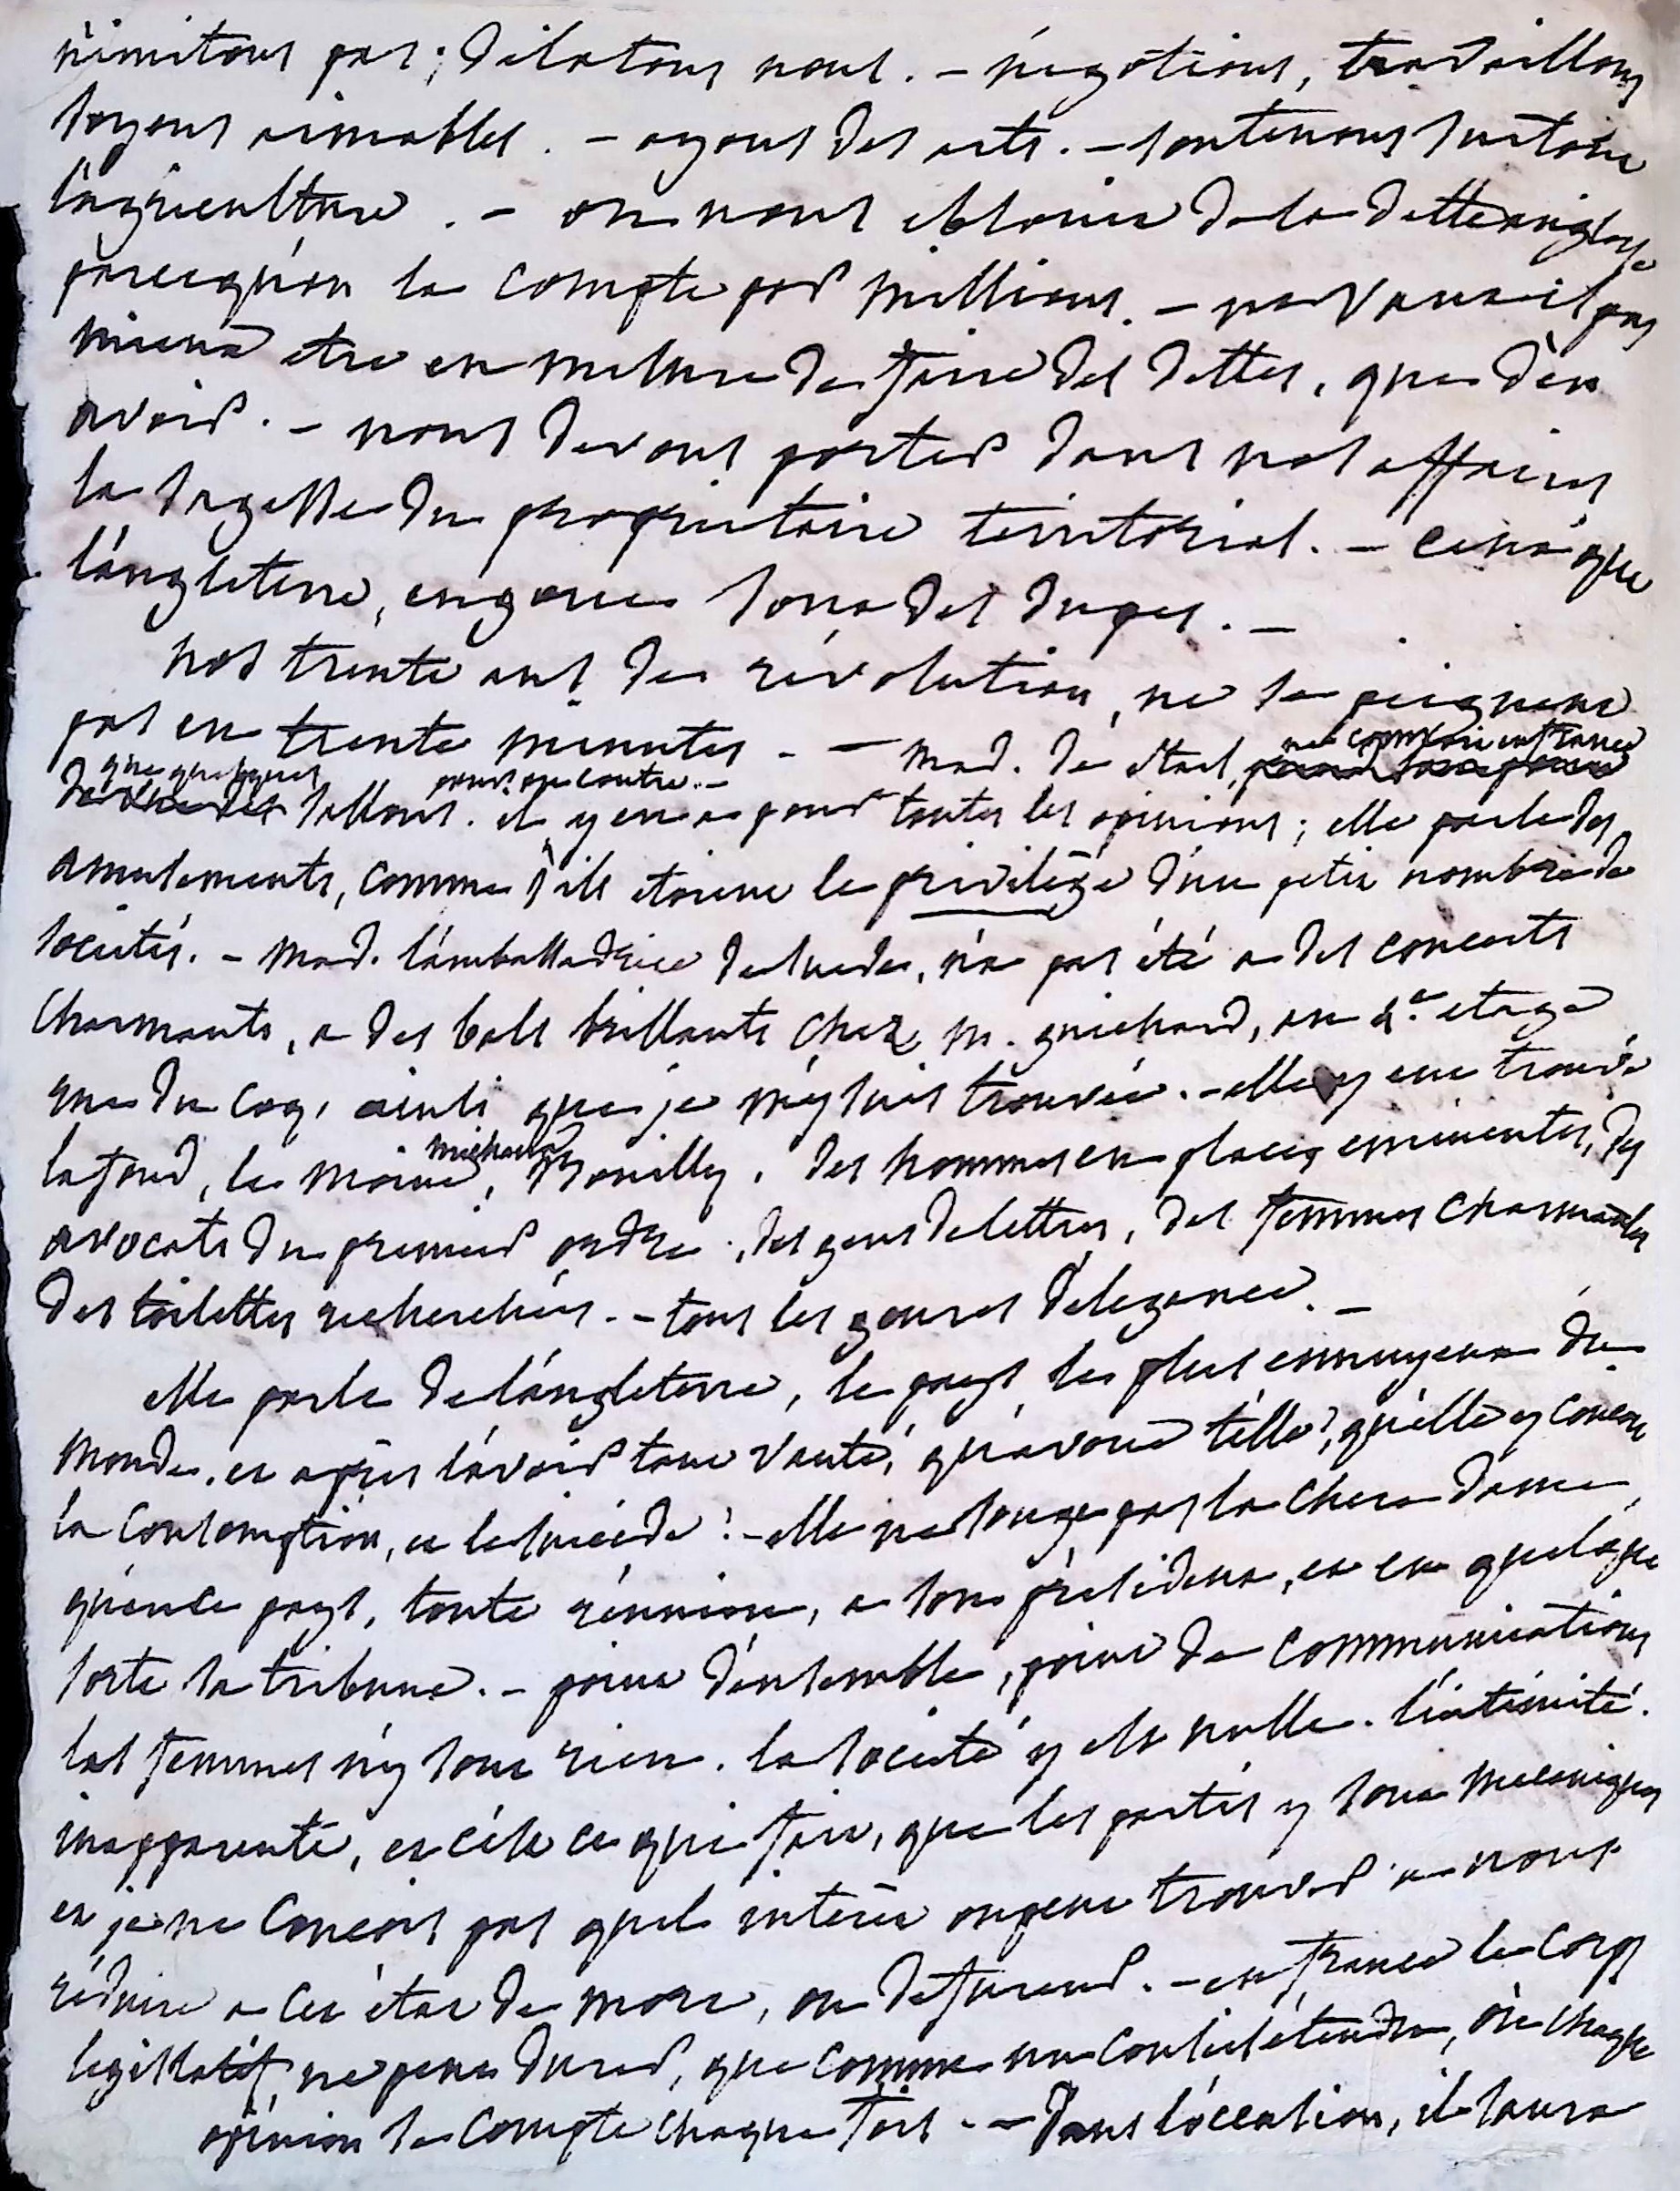 n'imitons pas; dilatons nous. – négotions, travaillons
soyons aimables. – ayons des arts. – soutenons surtout
l'agriculture. – on nous eblouit de la dette anglaise
parcequ'on la compte par millions. – ne vaut il pas
mieux etre en mesure de faire des dettes, que d'en
avoir. – nous devons porter dans nos affaires
la sagesse du proprietaire territorial. – ceux que
l'angleterre, engoue sont des dupes. –
nos trente ans de révolution, ne se peignent
pas en trente minutes. – – mad. de stael, ne connoit en france
que quelques sallons. il y en a pour toutes les opinions; elle parle des
pour ou contre. –
amusements, comme s'ils etoient le privilège d'un petit nombre de
sociétés. – mad. l'ambassadrice de suède, n'a pas été a des concerts
charmants, a des bals brillants chez m. guichard, au 2e. etage
rue du coq, ainsi que je m'y suis trouvée. – elle y eut trouvé
lafond, le moine, michaud, Bouilly, des hommes en places eminentes, des
avocats du premier ordre, des gens de lettres, des femmes charmantes
des toilettes recherchées. – tous les genres d'elegance. –
elle parle de l'angleterre, le pays le plus ennuyeux du
monde, et après l'avoir tant vanté, qu'avoue t'elle? qu'elle y conçoit
la consomption, et le suicide! – elle ne songe pas la chere dame,
qu'en ce pays, toute réunion, a son président, et en quelque
sorte sa tribune. – point d'ensemble, point de communications
les femmes n'y sont rien. la société y est nulle. l'intimité.
inapparente, et c'est ce qui fait, que les partis y sont mecaniques
et je ne conçois pas quel intérêt on peut trouver a nous
réduire a cet état de mort, ou de fureur. – en france le corps
legislatif, ne peut durer, que comme un conseil étendu, où chaque
opinion se compte chaque fois. – – dans l'occasion, il saura